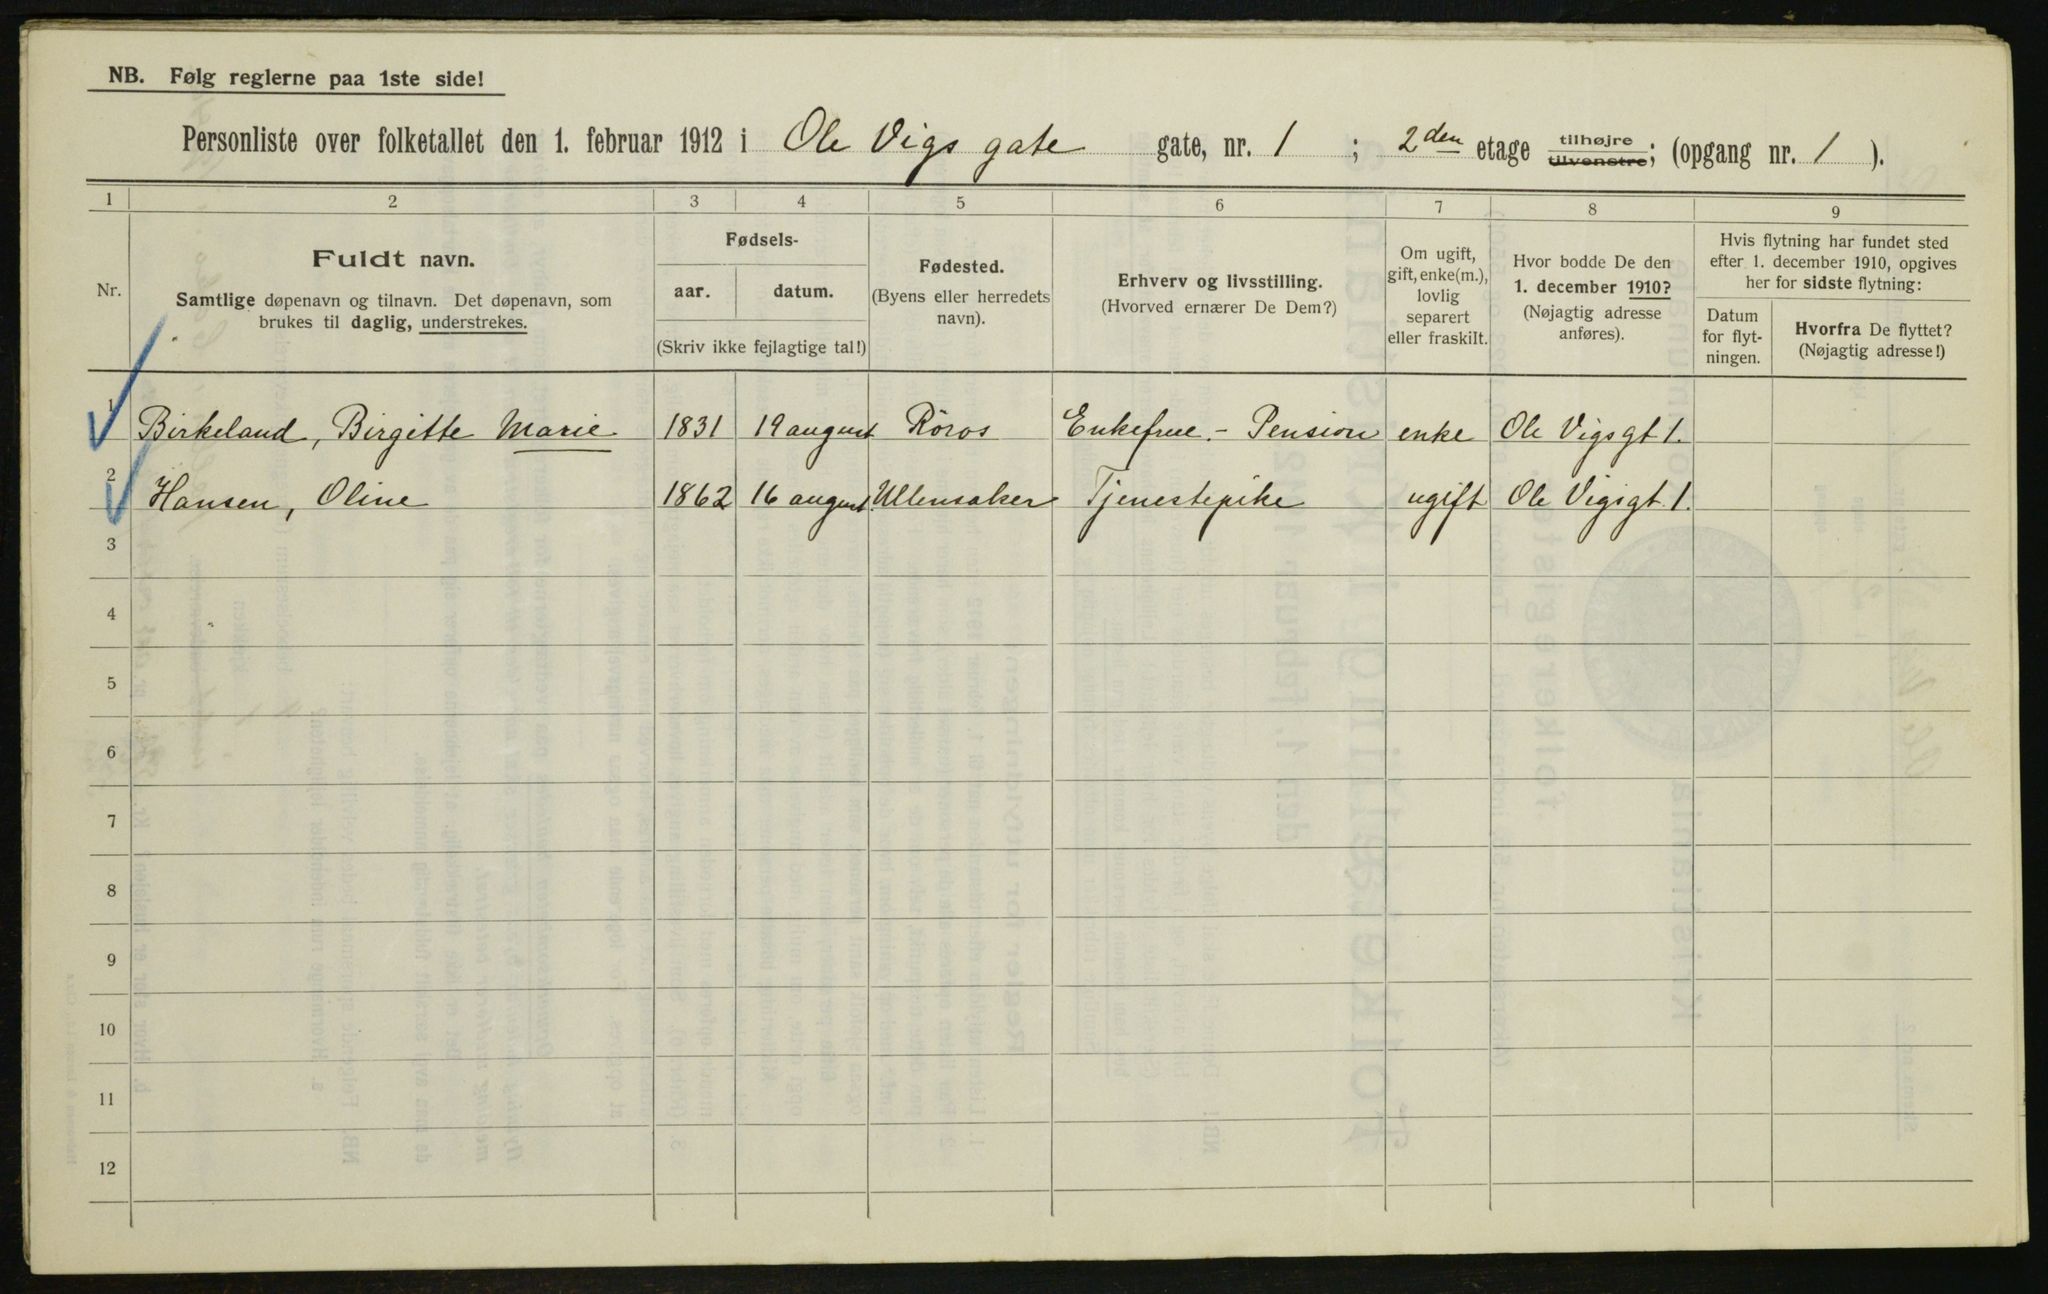 NB. Følg reglerne paa 1ste side!
Personliste over folketallet den 1. februar 1912 i Ole Vigs gate gate, nr. 1 ; 2den etage tilhøjre tilvenstre; (opgang nr. 1 ).
1 2 3 4 5 6 7 8 9
Nr.
Fuldt navn.
Samtlige døpenavn og tilnavn. Det døpenavn, som
brukes til daglig, understrekes.
Fødsels-
aar. datum.
(Skriv ikke fejlagtige tal!)
Fødested.
(Byens eller herredets
navn).
Erhverv og livsstilling.
(Hvorved ernærer De Dem?)
Om ugift,
gift, enke(m.),
lovlig
separert
eller fraskilt.
Hvor bodde De den
1. december 1910?
(Nøjagtig adresse
anføres).
Hvis flytning har fundet sted
efter 1. december 1910, opgives
her for sidste flytning:
Datum
for flyt-
ningen.
Hvorfra De flyttet?
(Nøjagtig adresse!)
1 Birkeland, Birgitte Marie 1831 19 august Röros Enkefrue. - Pension enke Ole Vigsgt 1.
2 Hansen, Oline 1862 16 august. Ullensaker Tjenestepike ugift Ole Vigsgt 1.
3
4
5
6
7
8
9
10
11
12